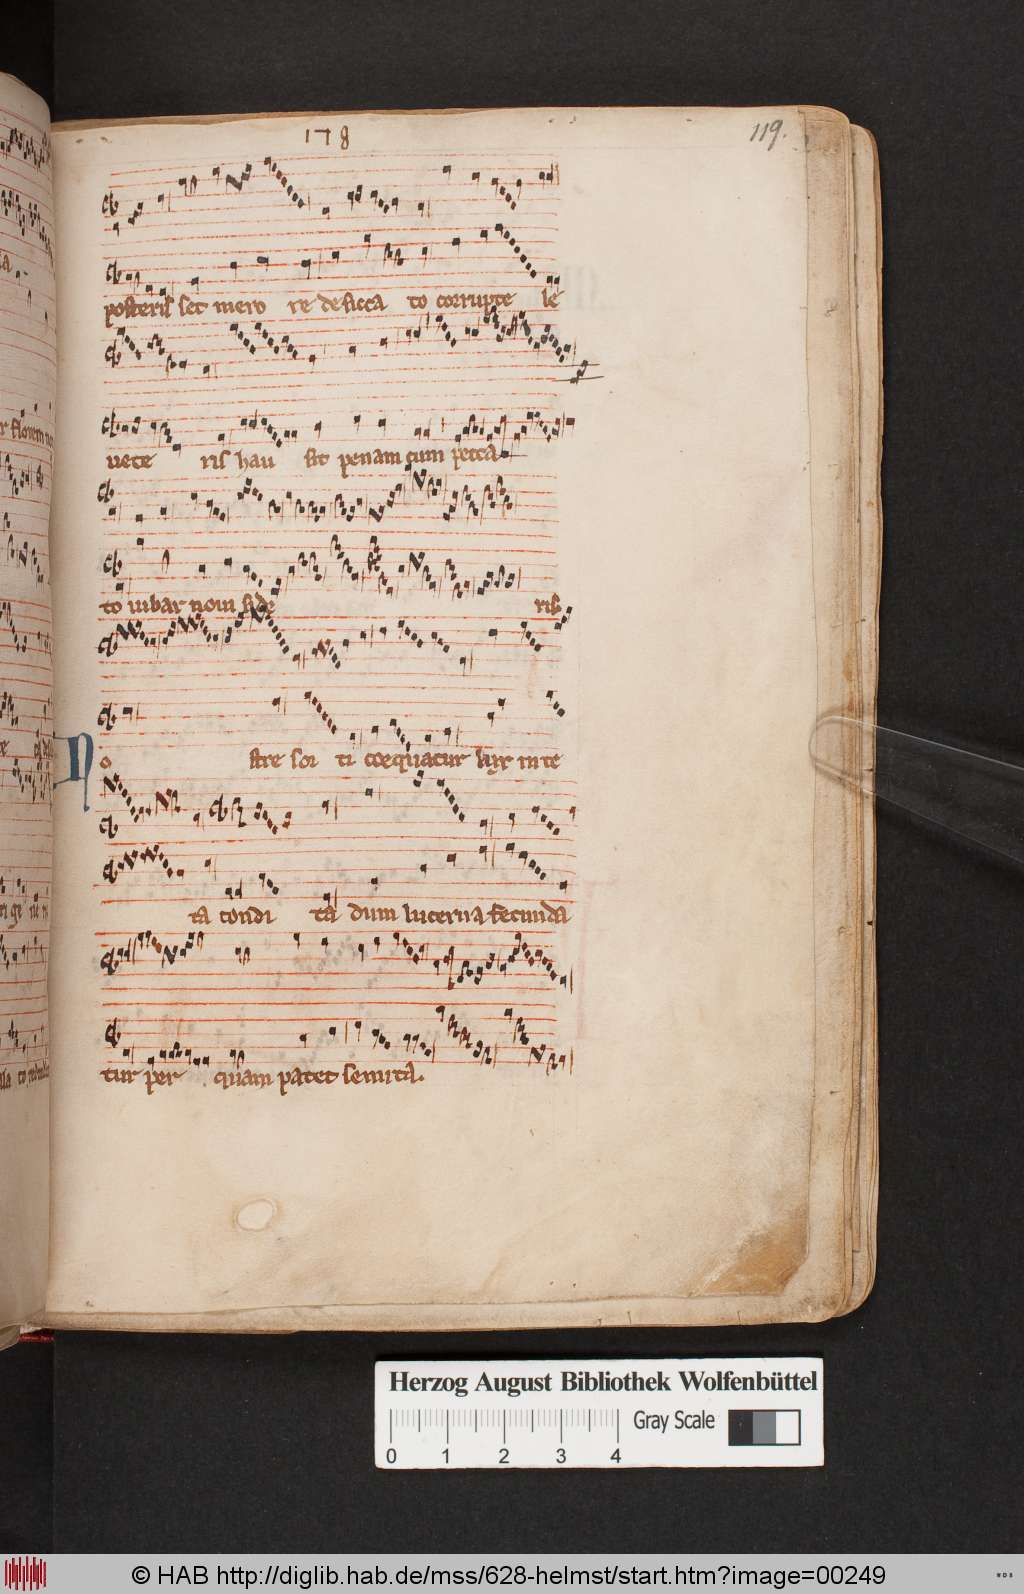 178
119.
posteris set mero re desicca to corrupte le
vete ris hau sit penam cum pecca
to iubar novi side ris
No stre sor ti coequatur lux in te
ta condi ta dum lucerna fecunda
tur per quam patet semita.
Herzog August Bibliothek Wolfenbüttel
Gray Scale
0 1 2 3 4
© HAB http://diglib.hab.de/mss/628-helmst/start.htm?image=00249